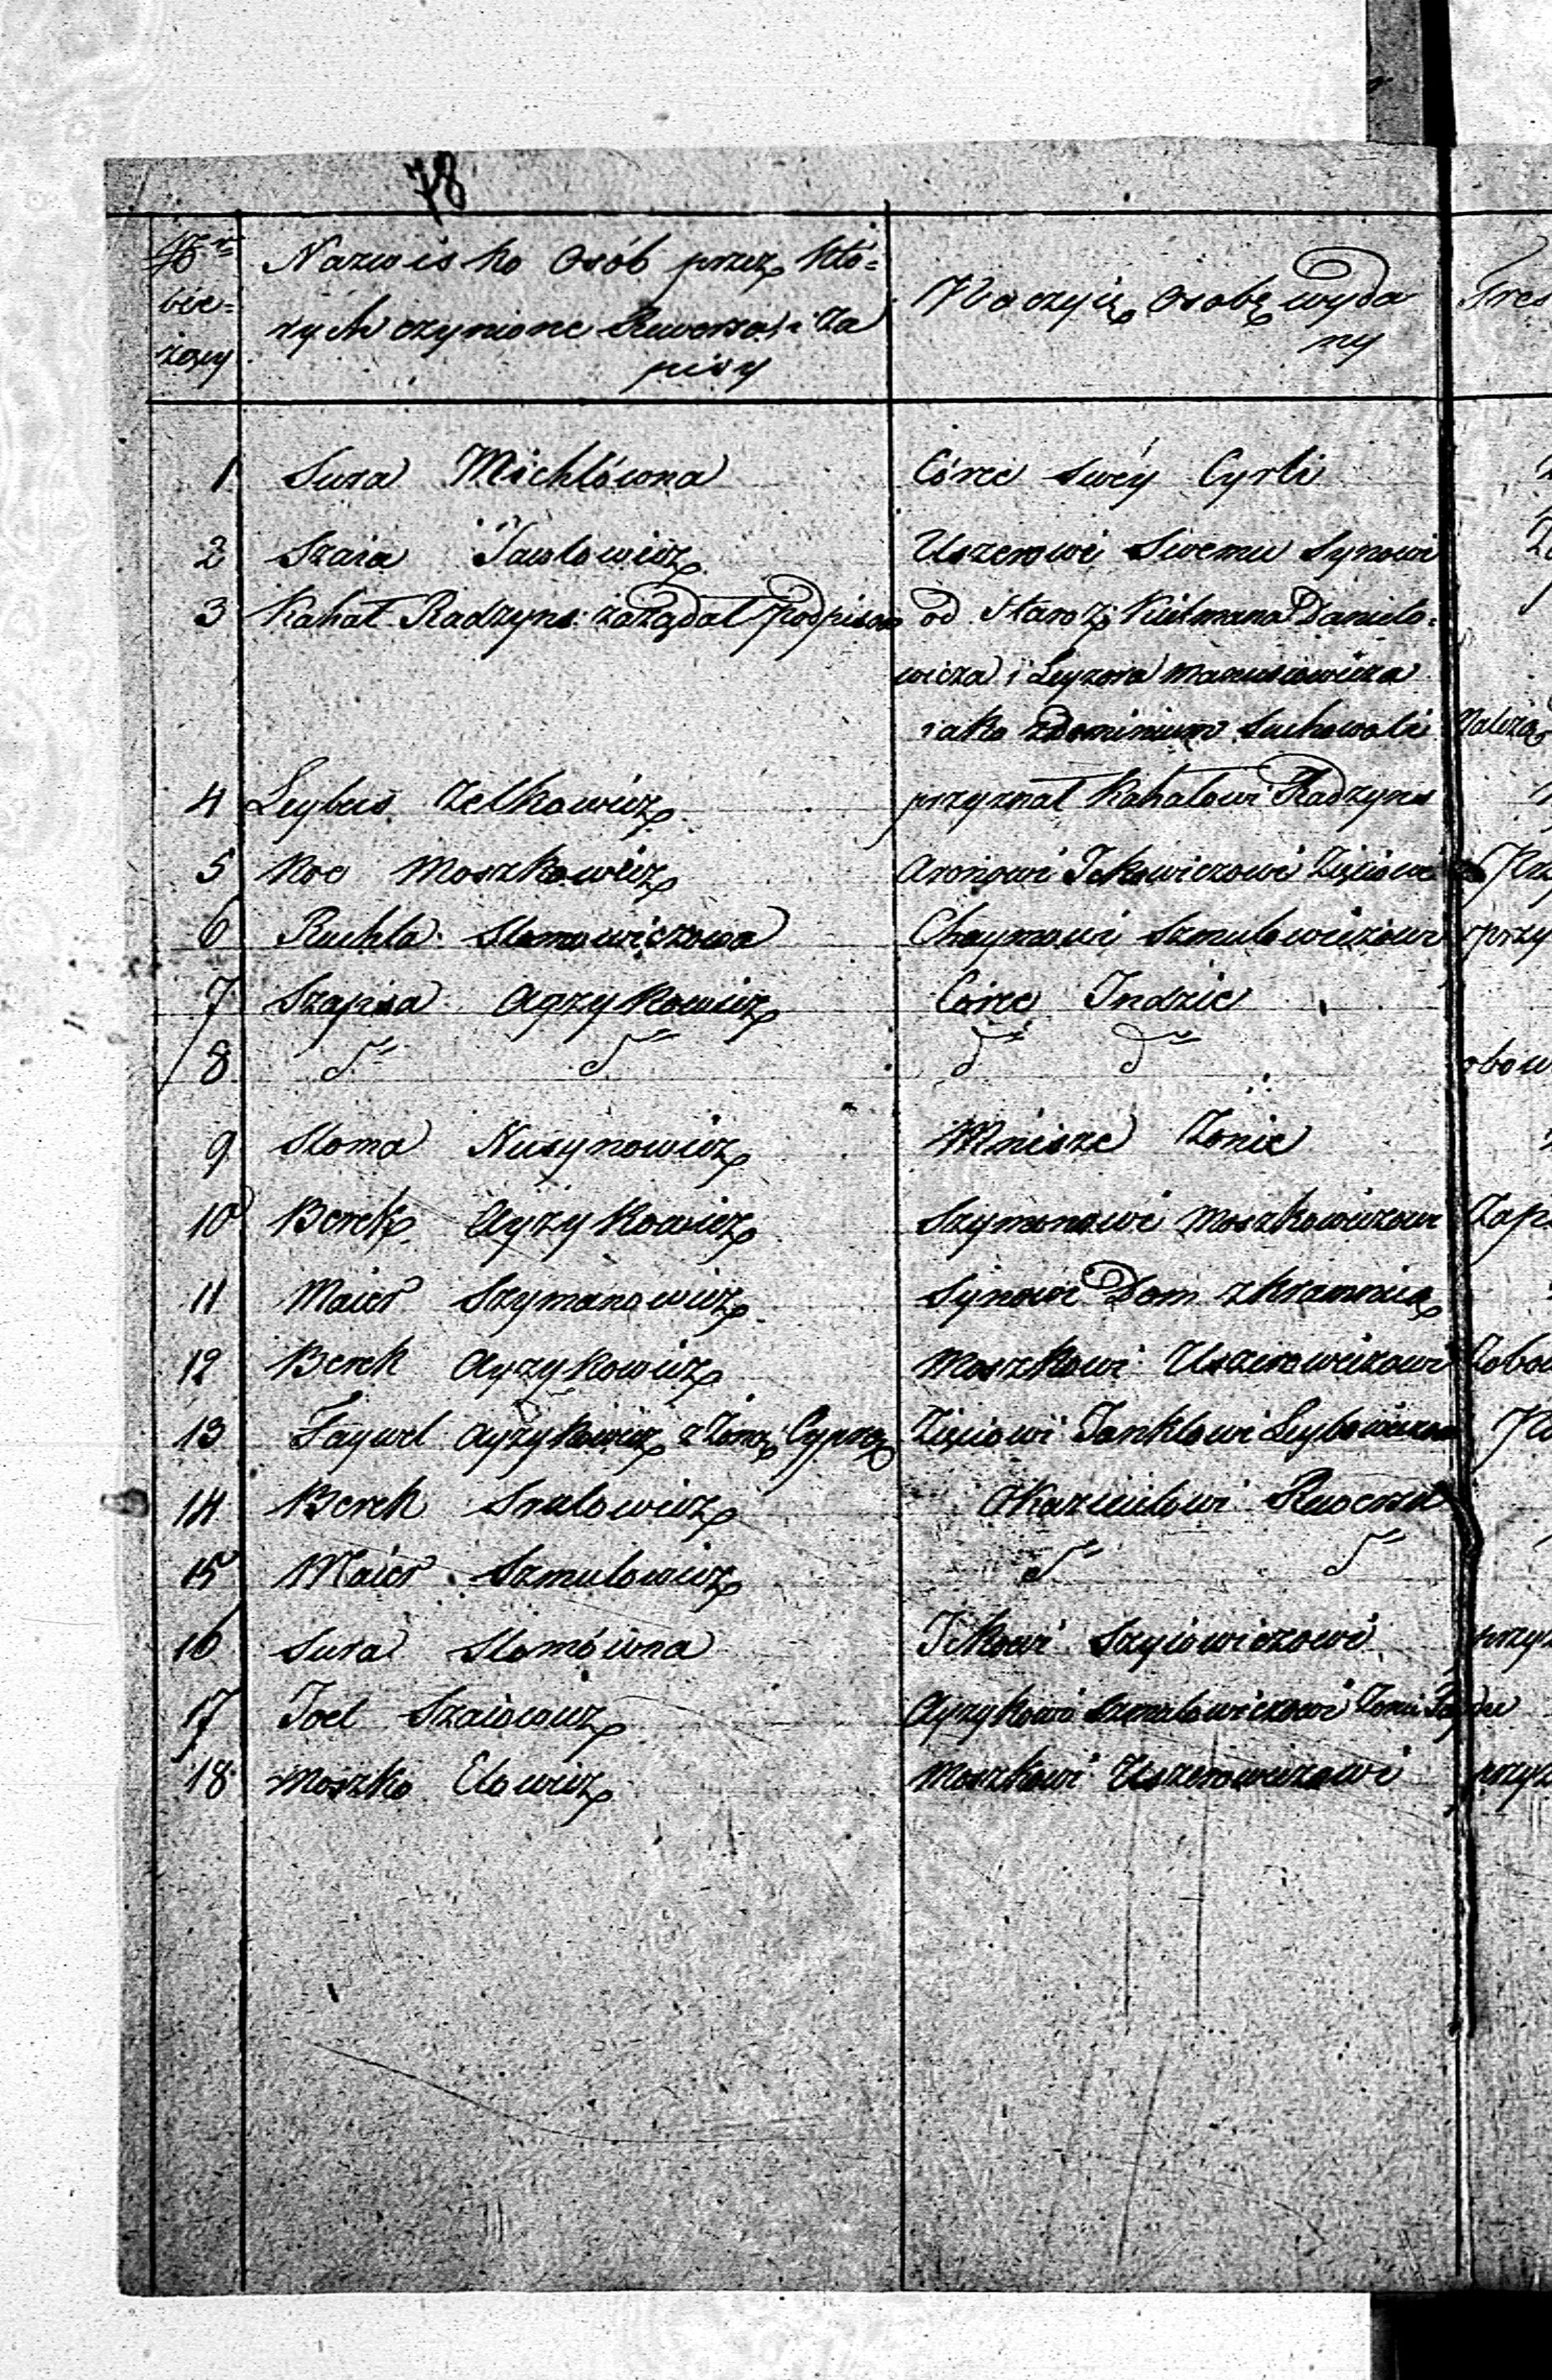 78
Nr bie= żący | Nazwisko Osób przez któ= rych czynione Rewersa i Za pisy | Na czyię osobę wyda ny | Tres
1 Sura Michlówna | Córce swéy Cyrli
2 Szaia Jawlowicz | Uszerowi Swemu Synowi
3 Kahał Radzyns: zażądał Podpisow | od Staroz: Kielmana Danielo=
wicza i Leyzora Manusiowicza
iako z Dominium Suchowoli | Należą
4 Leybus Zelkowicz | przyznał Kahałowi Radzyns
5 Koc Moszkowicz | Aronowi Ickowiczowi Zięciowi
6 Ruchla Slomowiczowa | Chaymowi Szmulowiczowi | przy
7 Szapsa Ayzykowicz | Córce Indzie
8 dto dto | dto dto | obow
9 Sloma Nusynowicz | Mnisze Żonie
10 Berek Ayzykowicz | Szymonowi Moszkowiczowi | Zap
11 Maier Szymonowicz | Synowi Dom z kramnicą
12 Berek Ayzykowicz | Moszkowi Uszerowiczowi | Zobo
13 Faywel Ayzykowicz z Żoną Cyprą | Zięciowi Janklowi Leybowiczow
14 Berek Srulowicz | Okazicielowi Rewersu
15 Maier Szmulowicz | dto dto
16 Sura Slomówna | Ickowi Szyiowiczowi | przyz
17 Joel Szaiowicz | Ayzykowi Szmulowiczowi Żonie
18 Moszko Elowicz | Moszkowi Uszerowiczowi | przyz